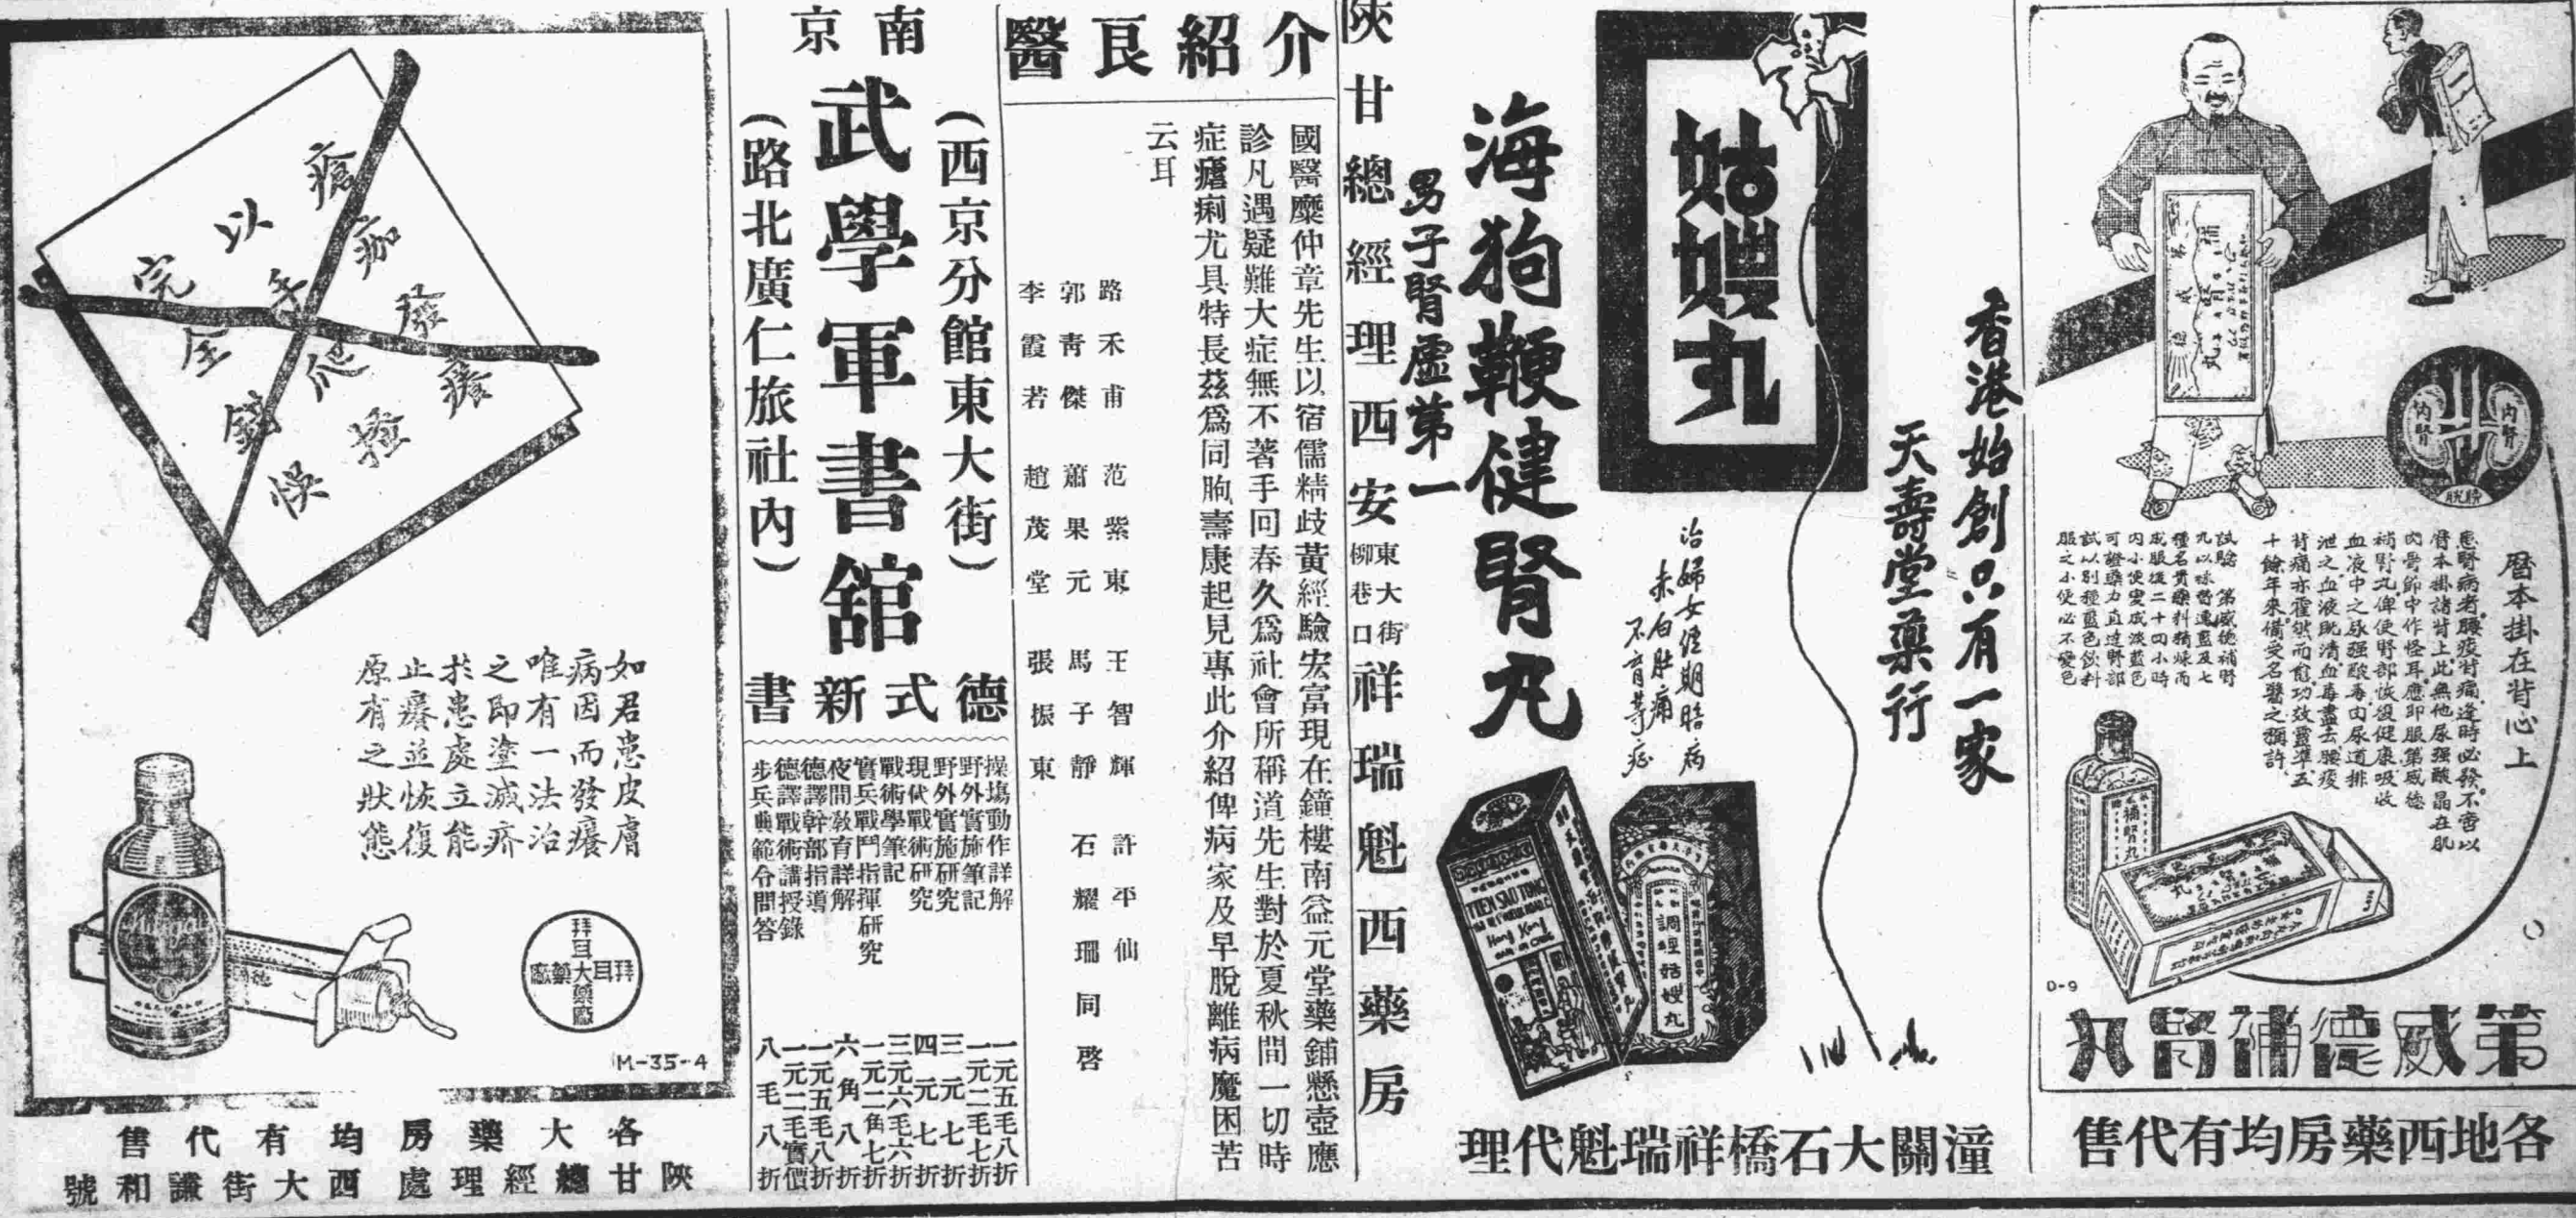 曆本掛在背心上
患腎病者腰痠背痛逢時必發不啻以
曆本掛諸背上此無他尿强酸晶在肌
肉骨節中作怪耳應即服第威德
補腎丸俾使腎部恢復健康吸收
血液中之尿强酸毒由尿道排
泄之血液既清血毒盡去腰痠
背痛亦霍然而愈功效靈準五
十餘年來備受名醫之稱許
試驗 第威德補腎
丸以
種名貴藥料精煉而
成服後二十四小時
內小便變成淡藍色
可證藥力直達腎部
試以別種藍色飲料
服之小便必不變色
內腎
內腎
膀胱
補腎丸
D-9
第威德補腎丸
各地西藥房均有代售
香港始創只有一家
天壽堂藥行
姑嫂丸
治婦女經期腊病
赤白肚痛
不育等症
海狗鞭健腎丸
男子腎虛第一
TIEN SAU TONG
Hong Kong
調經姑嫂丸
潼關大石橋祥瑞魁代理
陝甘總經理西安東大街柳巷口祥瑞魁西藥房
介紹良醫
國醫麋仲章先生以宿儒精歧黃經驗宏富現在鐘樓南益元堂藥鋪懸壺應
診凡遇疑難大症無不著手回春久爲社會所稱道先生對於夏秋間一切時
症瘧痢尤具特長茲爲同胞壽康起見專此介紹俾病家及早脫離病魔困苦
云耳
路禾甫 范紫東 王智輝 許平仙
郭靑傑 蕭果元 馬子靜 石耀珊 同啓
李霞若 趙茂堂 張振東
南京
武學軍書舘
(西京分館東大街)
(路北廣仁旅社內)
德式新書
操塲動作詳解 一元五毛八折
野外實施筆記 一元二毛七折
野外實施研究 三元七折
現伏戰術研究 四元七折
戰術學筆記 三元六毛六折
實兵戰鬥指揮研究 一元二角七折
夜間敎育詳解 六角八折
德譯幹部指導 一元五毛八折
德譯戰術講授錄 一元二毛實價
步兵典範令問答 八毛八折
瘡疥發癢
以手爬搔
完全錯悞
如君患皮膚
病因而發癢
唯有一法治
之即塗滅疥
於患處立能
止癢並恢復
原有之狀態
拜耳大藥廠
拜耳大藥廠
M-35-4
各大藥房均有代售
陝甘總經理處西大街謙和號